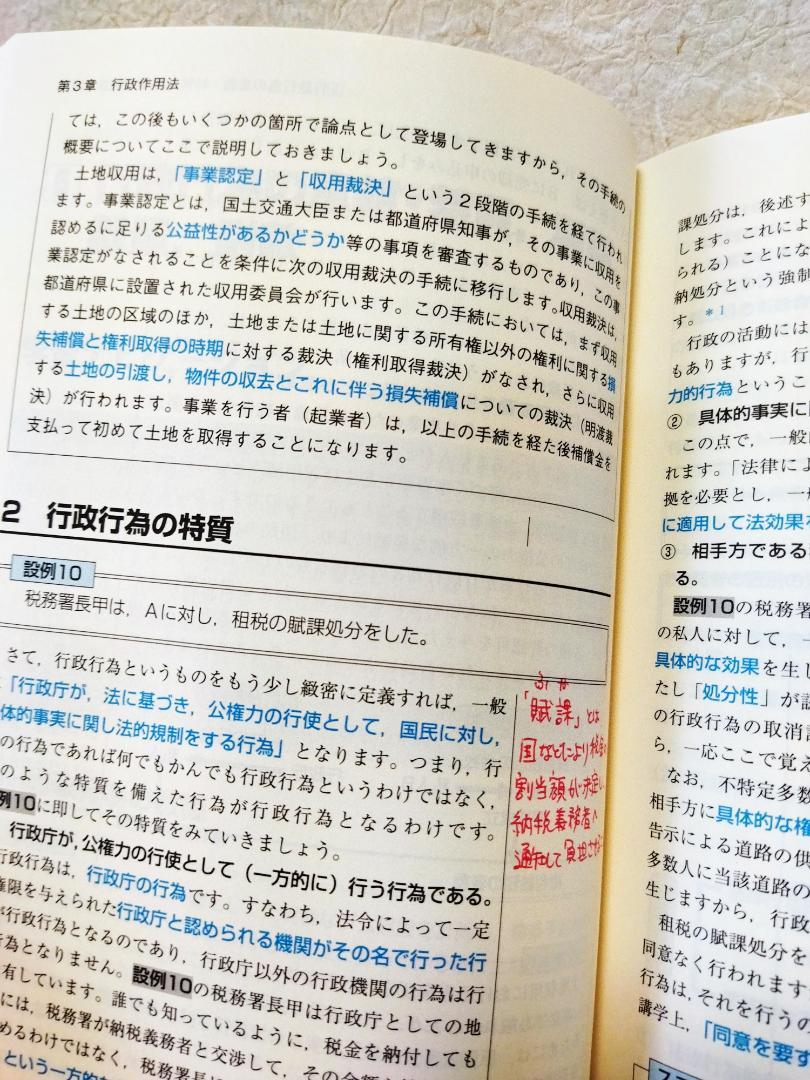 第3章 行政作用法
ては，この後もいくつかの箇所で論点として登場してきますから，その手続の
概要についてここで説明しておきましょう。
土地収用は，「事業認定」と「収用裁決」という２段階の手続を経て行われ
ます。事業認定とは，国土交通大臣または都道府県知事が，その事業に収用を
認めるに足りる公益性があるかどうか等の事項を審査するものであり，この事
業認定がなされることを条件に次の収用裁決の手続に移行します。収用裁決は，
都道府県に設置された収用委員会が行います。この手続においては，まず収用
する土地の区域のほか，土地または土地に関する所有権以外の権利に関する損
失補償と権利取得の時期に対する裁決（権利取得裁決）がなされ，さらに収用
する土地の引渡し，物件の収去とこれに伴う損失補償についての裁決（明渡裁
決）が行われます。事業を行う者（起業者）は，以上の手続を経た後補償金を
支払って初めて土地を取得することになります。
2 行政行為の特質
設例10
税務署長甲は，Aに対し，租税の賦課処分をした。
さて，行政行為というものをもう少し緻密に定義すれば，一般
「行政庁が，法に基づき，公権力の行使として，国民に対し，
体的事実に関し法的規制をする行為」となります。つまり，行
の行為であれば何でもかんでも行政行為というわけではなく，
のような特質を備えた行為が行政行為となるわけです。
例10に即してその特質をみていきましょう。
行政庁が，公権力の行使として（一方的に）行う行為である。
行政行為は，行政庁の行為です。すなわち，法令によって一定
権限を与えられた行政庁と認められる機関がその名で行った行
が行政行為となるのであり，行政庁以外の行政機関の行為は行
行為となりません。設例10の税務署長甲は行政庁としての地
有しています。誰でも知っているように，税金を納付しても
には，税務署が納税義務者と交渉して，その
めるわけではなく，税務署長
という一方的
ふか
「賦課」とは
国などにより
割当額が決定
納税義務者へ
通知して負担させ
課処分は，後述す
します。これによ
られる）ことにな
納処分という強制
す。＊1
行政の活動には
もありますが，行
力的行為というこ
② 具体的事実に
この点で，一般
れます。「法律によ
拠を必要とし，一般
に適用して法効果を
③ 相手方である
る。
設例10の税務署
の私人に対して，一
具体的な効果を生じ
たし「処分性」が
の行政行為の取消
ら，一応ここで覚え
なお，不特定多数
相手方に具体的な権
告示による道路の供
多数人に当該道路の
生じますから，行政
租税の賦課処分を
同意なく行われます
行為は，それを行うの
講学上，「同意を要す